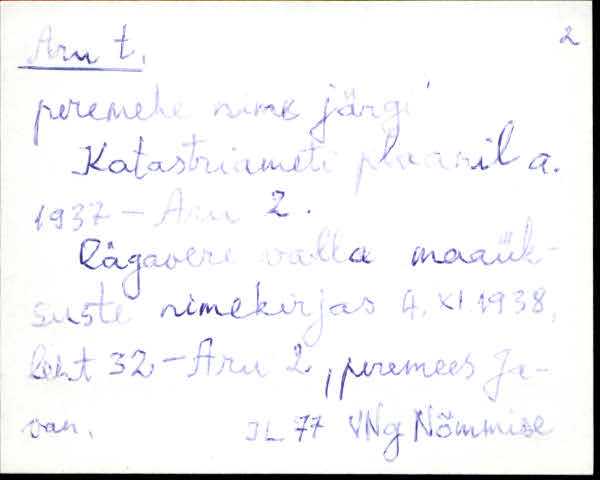 2
Aru t.
peremehe nime järgi
Katastriameti plaanil a.
1937 – Aru 2.
Rägavere valla maaük-
suste nimekirjas 4. XI 1938,
leht 32 – Aru 2, peremees Ja-
van. JL 77 VNg Nõmmise